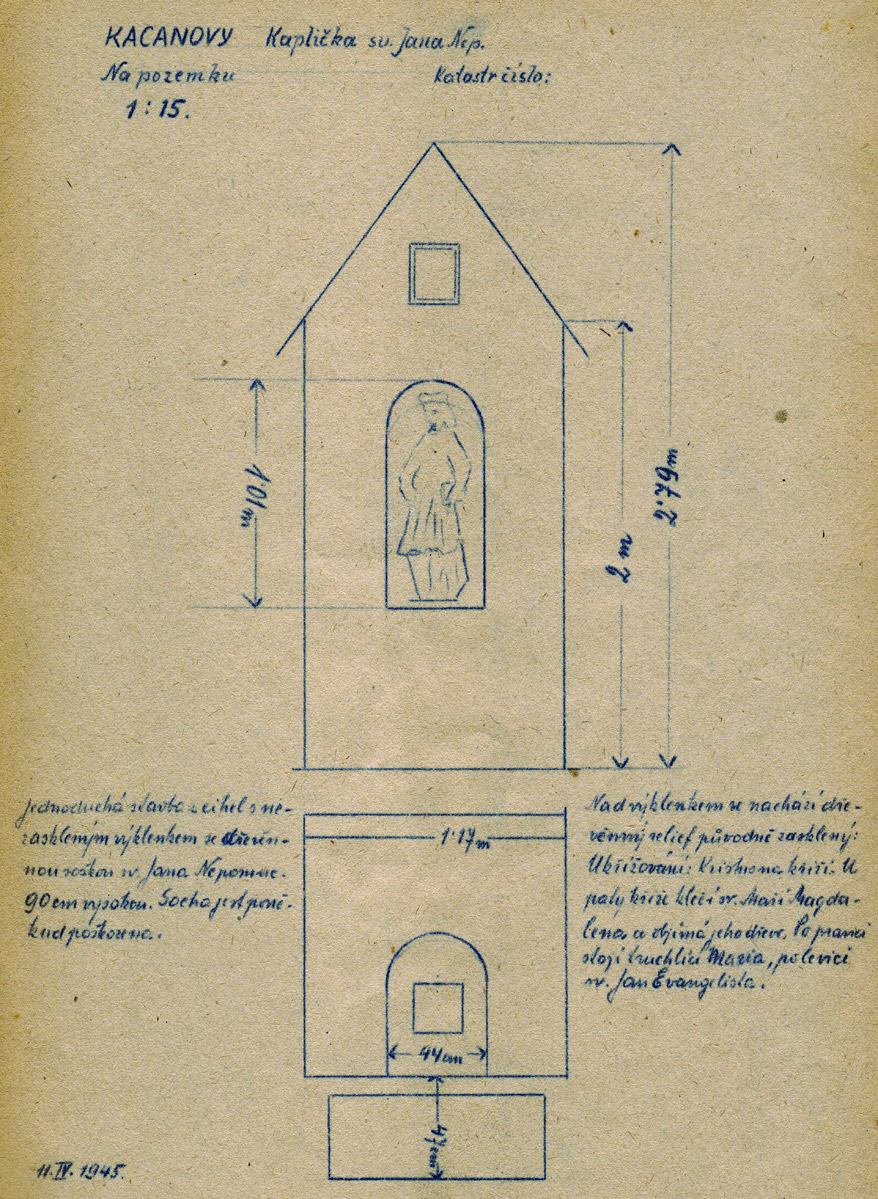 KACANOVY Kaplička sv. Jana Nep.
Na pozemku Katastr číslo:
1:15.
1·01 m
2·79m
2 m
Jednoduchá stavba z cihel s ne-
zaskleným výklenkem se dřevěn-
nou soškou sv. Jana Nepomuc.
90 cm vysokou. Socha jest poně-
kud poškozena.
1·17 m
Nad výklenkem se nachází dře-
věnný relief původně zasklený:
Ukřižování: Kristus na kříži. U
paty kříže klečí sv. Maří Magda-
lena a objímá jeho dřevo. Po pravici
stojí truchlící Maria, po levici
sv. Jan Evangelista.
44 cm
47 cm
11. IV. 1945.